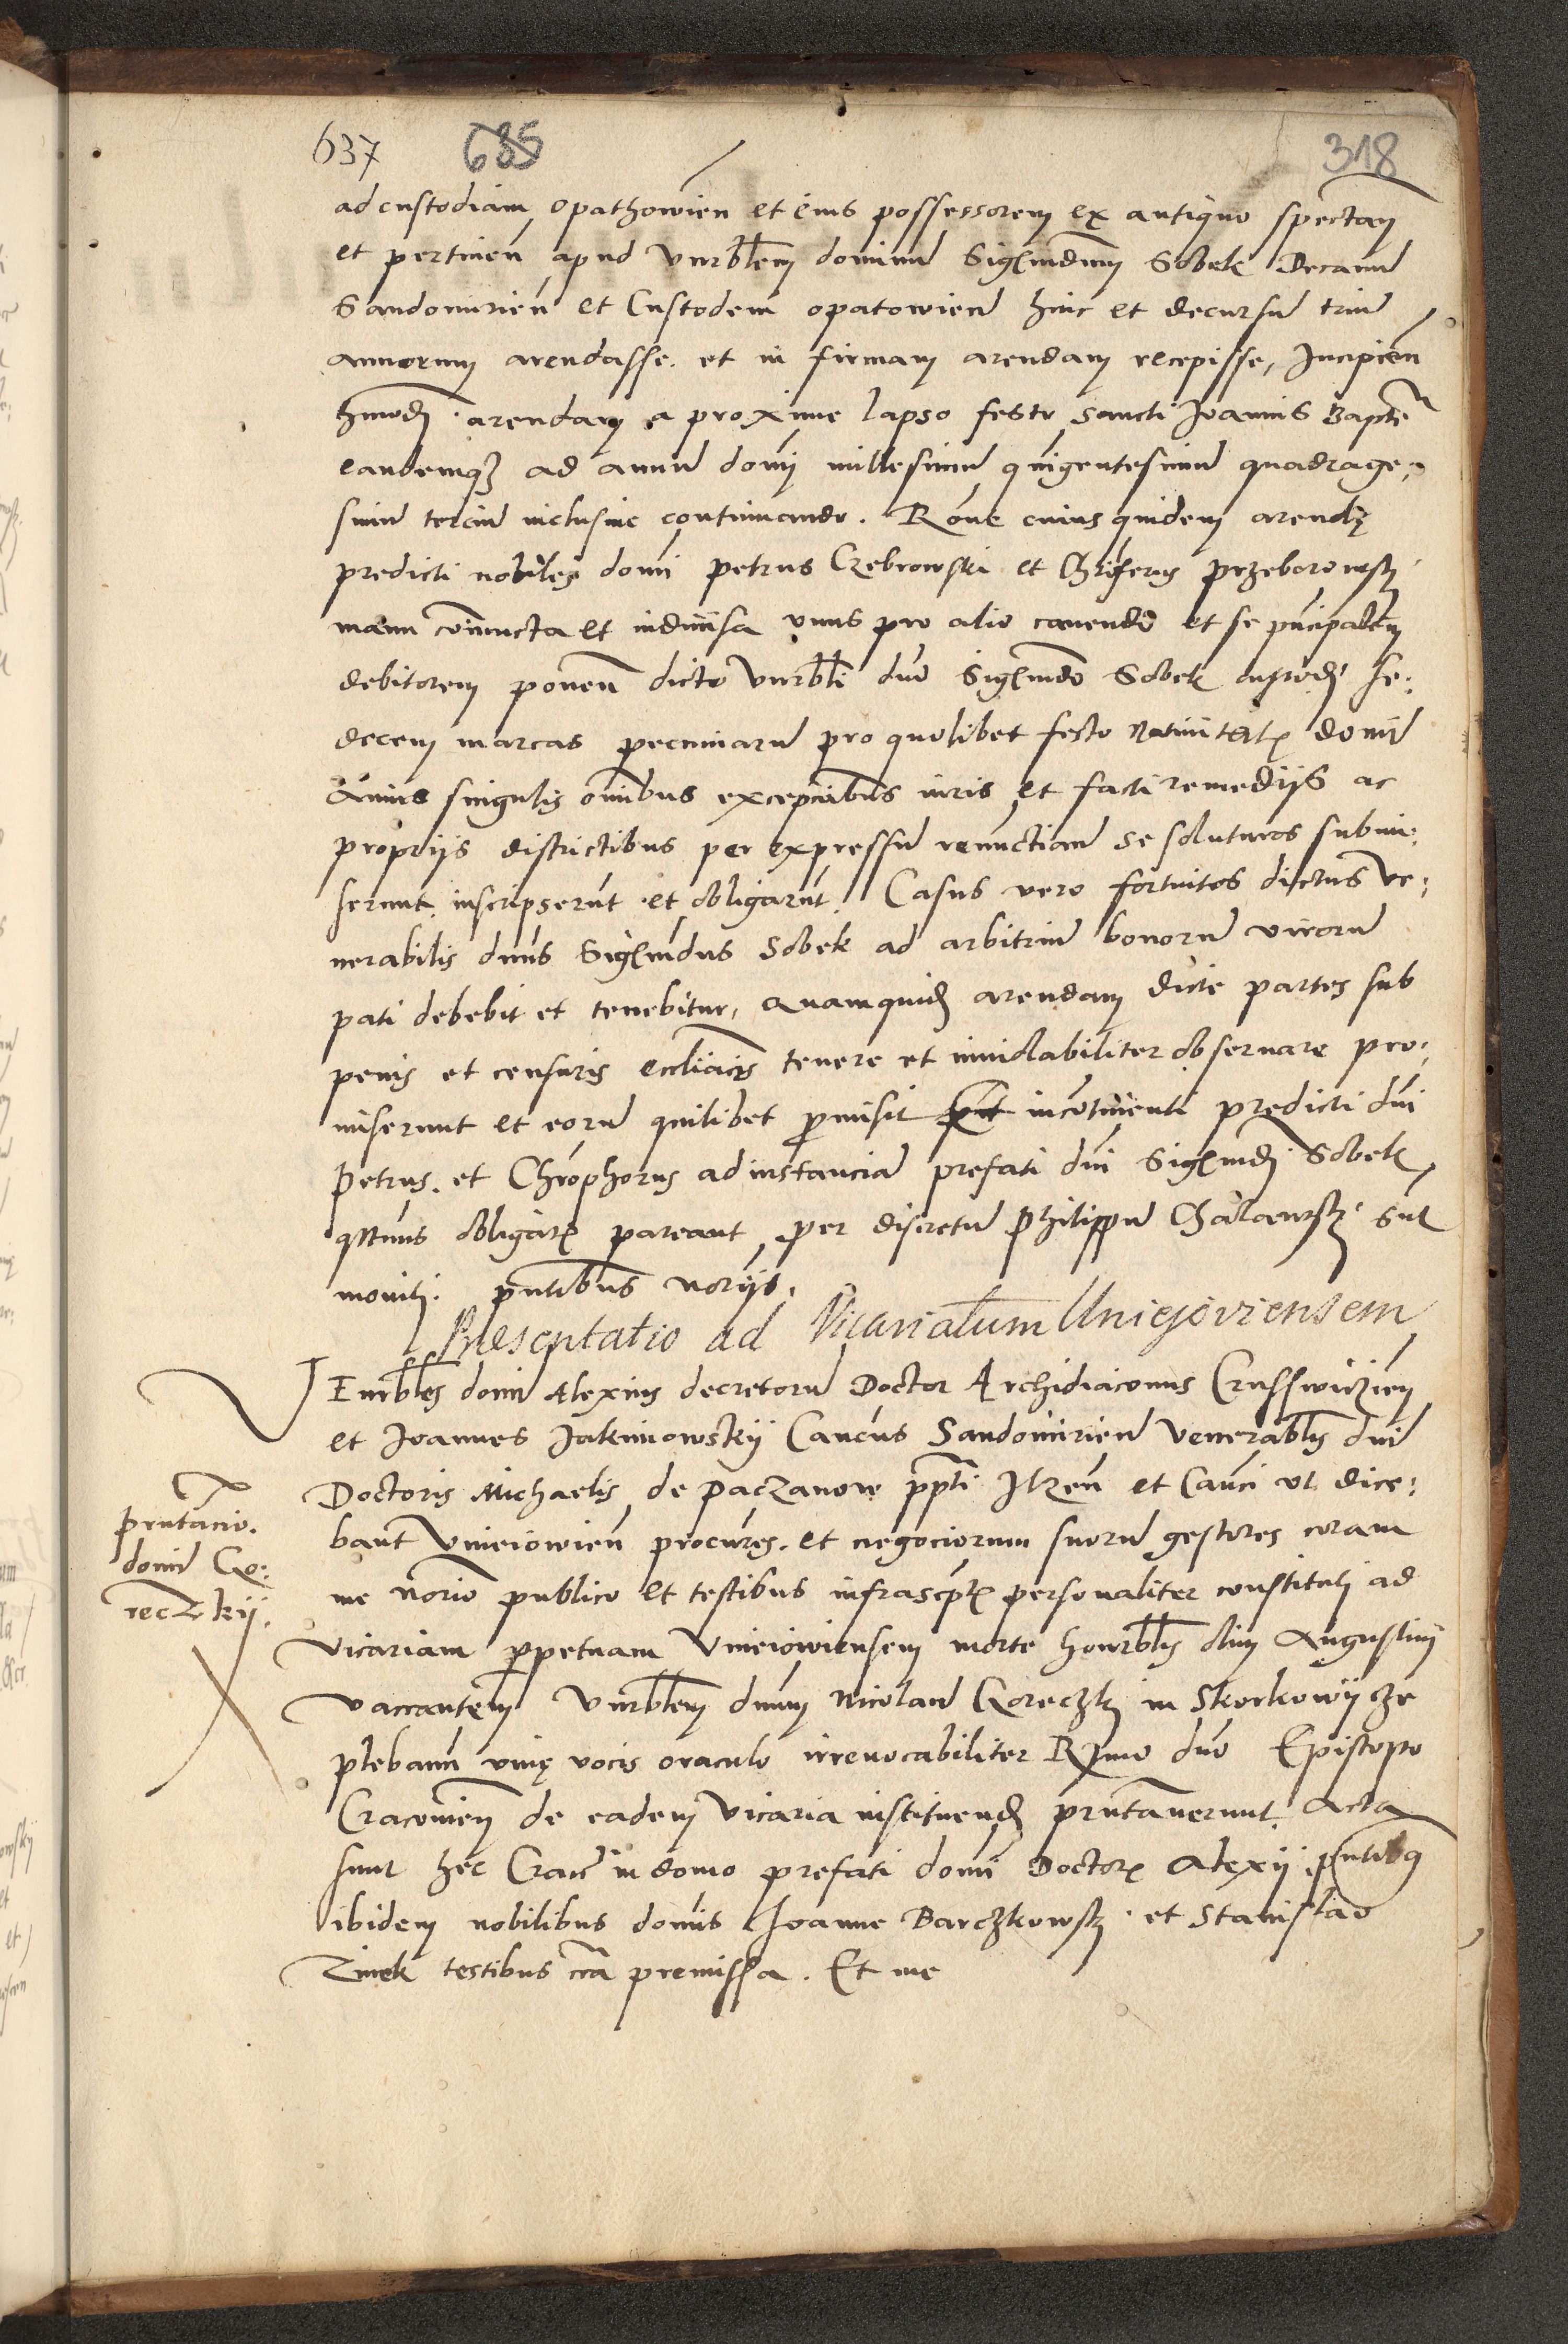 637 685 318
ad custodiam Opathowien et eius possessorem ex antiquo spectan
et pertinen apud Vnrblem dominu Sigismundum Sobek Decanu
Sandomirien et Custodem opatowien hinc et decursu triu
annorum arendasse. et in firmam arendam recepisse, Incipien
hmodi arendam a proxime lapso festo sancti Joannis Bapte
eandemq3 ad annu domi millesimu quigentesimu quadrage-
simu terciu inclusiue continuando. Rone cuius quidem arendę
predicti nobiles domi Petrus Czebrowski et Chriferus Przeborowsky
manu coniuncta et indiuisa vnus pro alio cauendo et se principalem
debitorem ponen dicto Vnrbli dno Sigismundo Sobek custodi se-
decem marcas pecuniaru pro quolibet festo Natiuitatis domi
Annis singulis omibus excepcionibus iuris et facti remedijs ac
proprijs districtibus per expressu renunctiam se soluturos submi-
serunt inscripserut et obligarut. Casus vero fortuitos dictus ve-
nerabilis dnus Sigismundus Sobek ad arbitriu bonoru viroru
pati debebit et tenebitur, Quamquidem arendam dicte partes sub
penis et censuris eccliacis tenere et inuiolabiliter obseruare pro-
miserunt et eoru quilibet promisit incotinenti predicti dni
Petrus. et Chrophorus ad instancia prefati dni Sigismundi Sobek,
qtnus obligatis pareant per discretu Philippu Chalawsky sut
moniti. pntibus norijs.
Presentatio ad Vicariatum Uniejoviensem
VEnrbles domi Alexius decretoru Doctor Archidiaconus Crusswicien
et Joannes Jakimowskij Cancus Sandomirien Venerablis dni
Doctoris Michaelis de Paczanow ppti Ilzen et Canci vt dice-
bant Vnieiowien procures. et negociorum suoru gestores coram
me norio publico et testibus infrascptis personaliter constituti ad
vicariam perpetuam Vnieiowiensem morte honrblis olim Augustini
vaccantem Vnrblem dnum Nicolau Goreczky in Skorkowijcze
plebanu viuę vocis oraculo irreuocabiliter Rssimo dno Episcopo
Cracouien de eadem Vicaria instituendum prntauerunt. Acta
sunt hec Crac in domo prefati domi Doctoris Alexij pntibus
ibidem nobilibus domis Joanne Barczkowsky et Stanislao
Zimek testibus cra premissa. Et me
Prntacio.
domi Go-
reczkij.